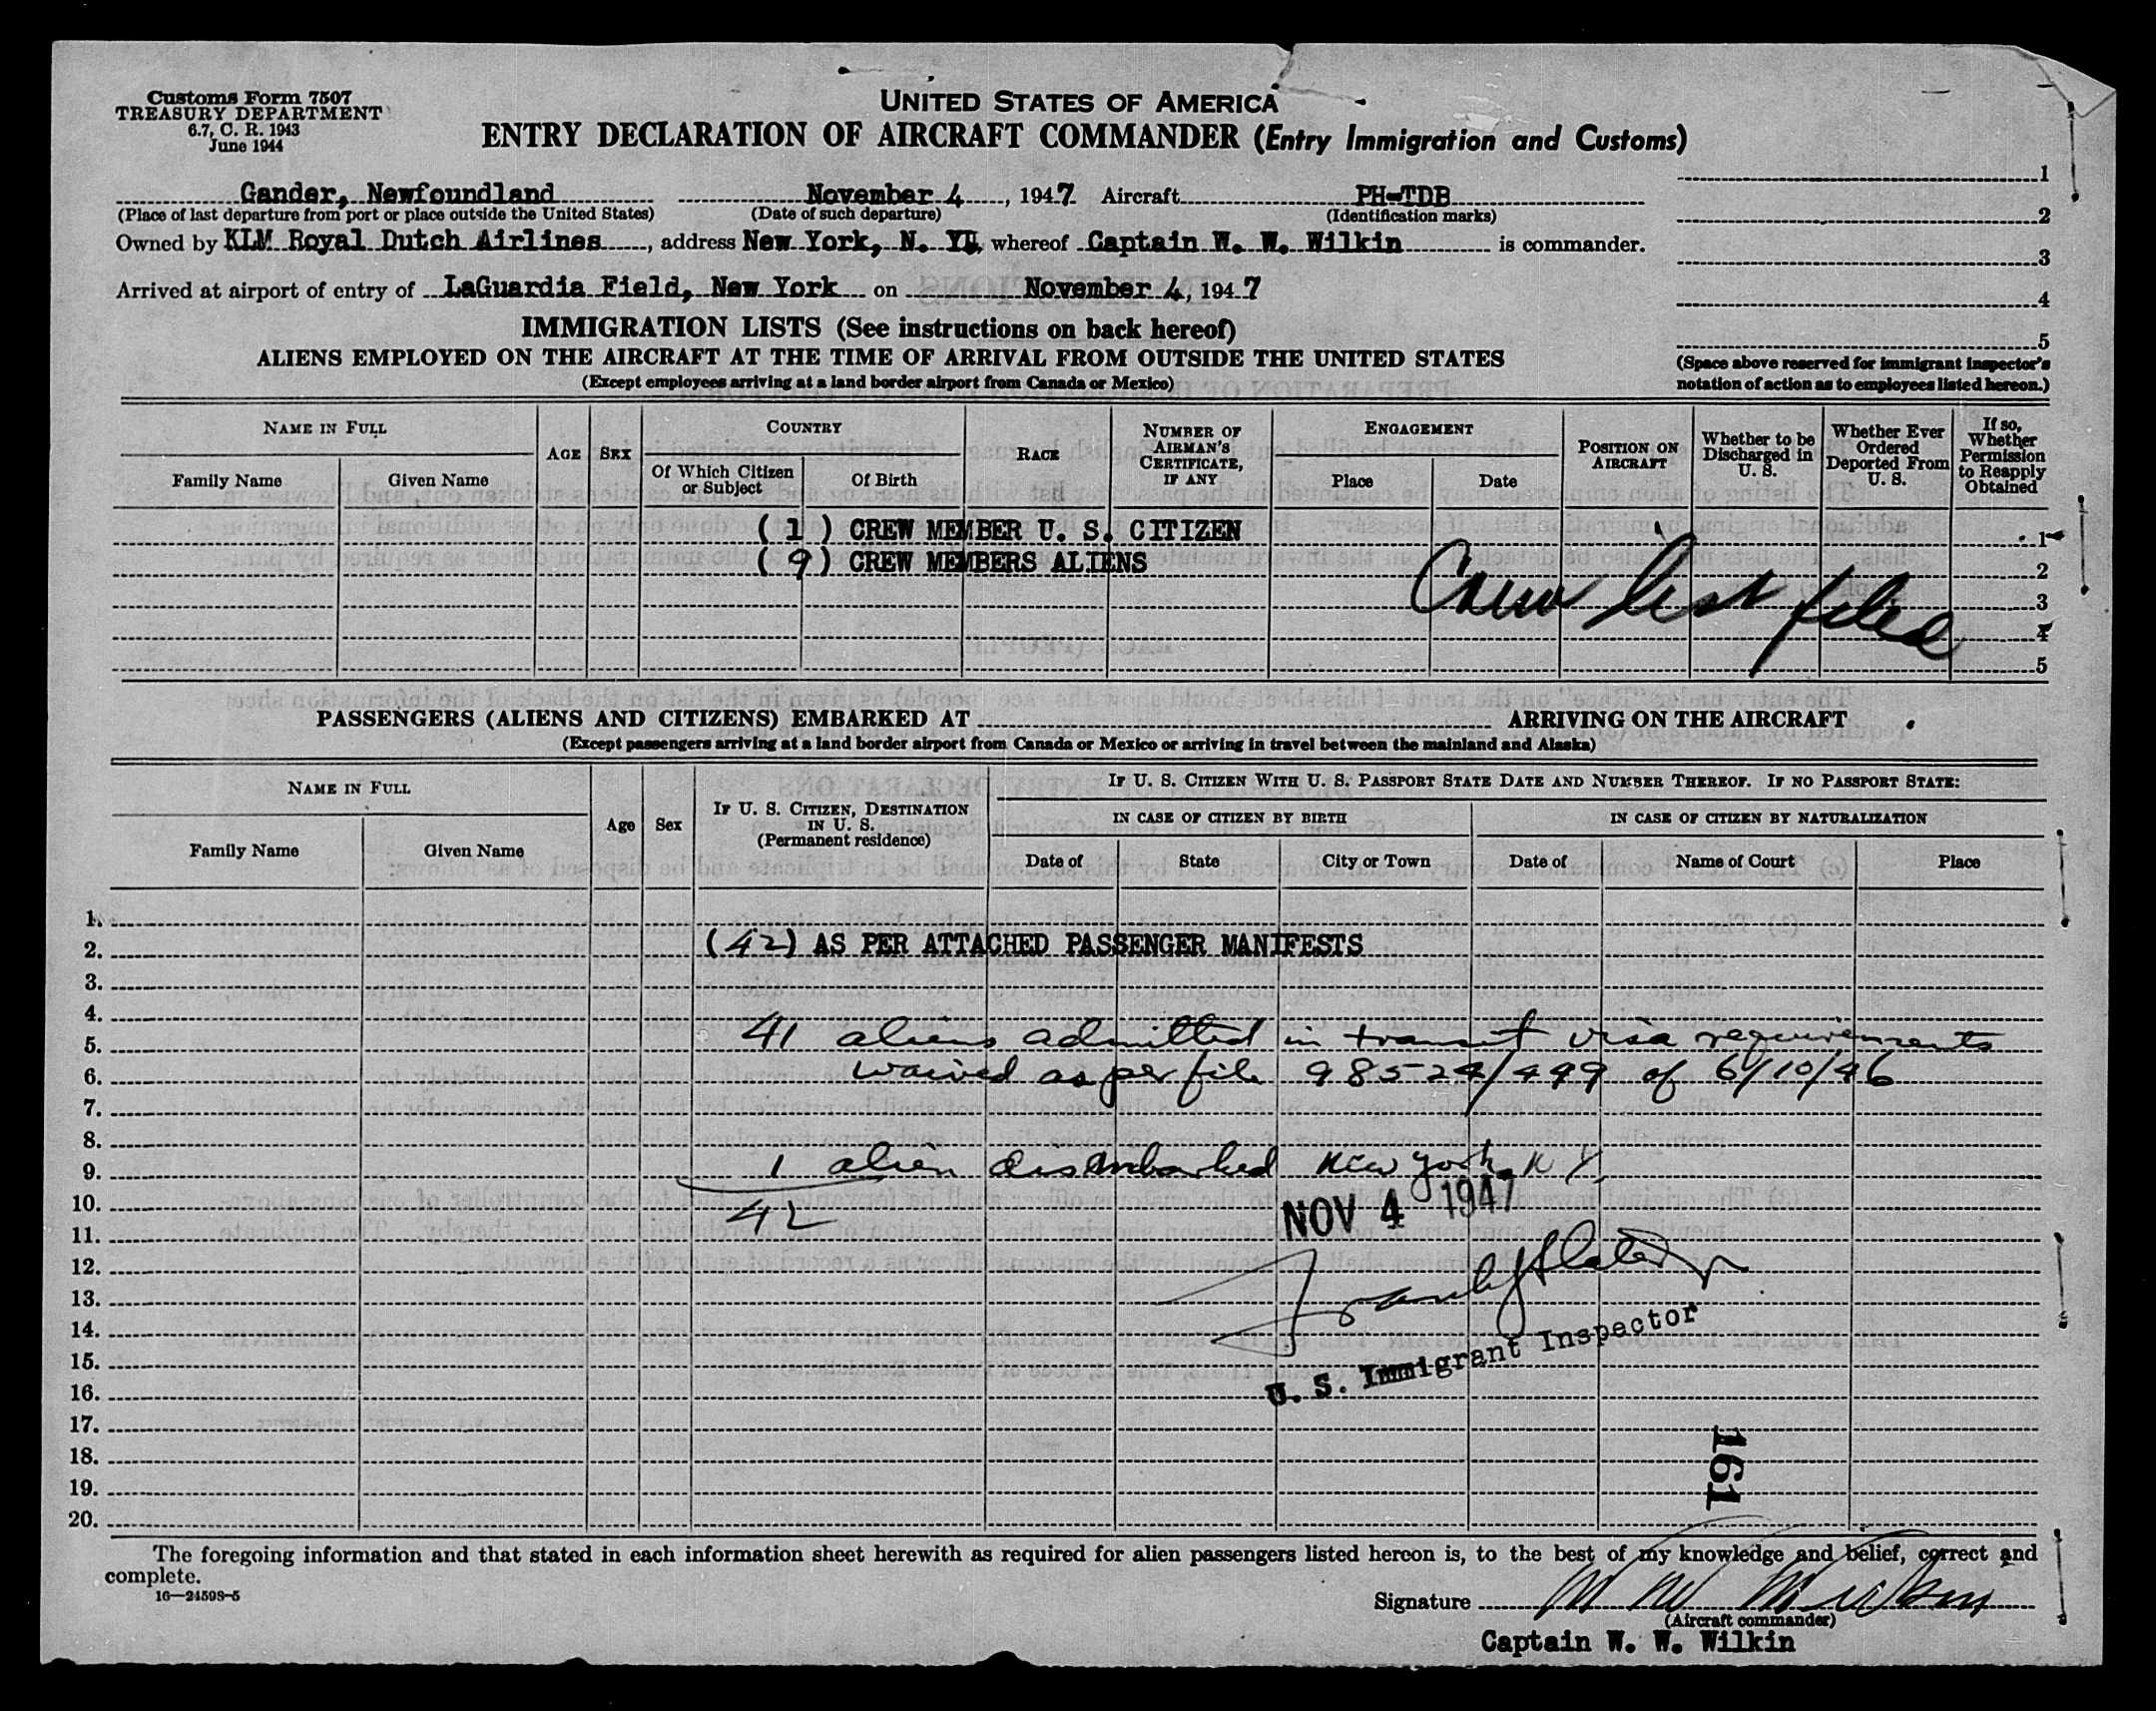 Customs Form 7507
TREASURY DEPARTMENT
6.7, C. R. 1943
June 1944
UNITED STATES OF AMERICA
ENTRY DECLARATION OF AIRCRAFT COMMANDER (Entry Immigration and Customs)
Gander, Newfoundland November 4, 1947 Aircraft PH-TDB
(Place of last departure from port or place outside the United States) (Date of such departure) (Identification marks)
Owned by KLM Royal Dutch Airlines, address New York, N. Y., whereof Captain W. W. Wilkin is commander.
Arrived at airport of entry of LaGuardia Field, New York on November 4, 1947
1
2
3
4
5
(Space above reserved for immigrant inspector's
notation of action as to employees listed hereon.)
IMMIGRATION LISTS (See instructions on back hereof)
ALIENS EMPLOYED ON THE AIRCRAFT AT THE TIME OF ARRIVAL FROM OUTSIDE THE UNITED STATES
(Except employees arriving at a land border airport from Canada or Mexico)
NAME IN FULL
Family Name Given Name
AGE SEX
COUNTRY
Of Which Citizen or Subject Of Birth
RACE
NUMBER OF AIRMAN'S CERTIFICATE, IF ANY
ENGAGEMENT
Place Date
POSITION ON AIRCRAFT
Whether to be Discharged in U. S.
Whether Ever Ordered Deported From U. S.
If so, Whether Permission to Reapply Obtained
(1) CREW MEMBER U. S. CITIZEN 1
(9) CREW MEMBERS ALIENS 2
Crew list filed 3
4
5
PASSENGERS (ALIENS AND CITIZENS) EMBARKED AT ARRIVING ON THE AIRCRAFT
(Except passengers arriving at a land border airport from Canada or Mexico or arriving in travel between the mainland and Alaska)
NAME IN FULL
Family Name Given Name
Age Sex
IF U. S. CITIZEN, DESTINATION IN U. S.
(Permanent residence)
IF U. S. CITIZEN WITH U. S. PASSPORT STATE DATE AND NUMBER THEREOF. IF NO PASSPORT STATE:
IN CASE OF CITIZEN BY BIRTH IN CASE OF CITIZEN BY NATURALIZATION
Date of State City or Town Date of Name of Court Place
1.
2. (42) AS PER ATTACHED PASSENGER MANIFESTS
3.
4.
5. 41 aliens admitted in transit visa requirements
6. waived as per file 98524/499 of 6/10/46
7.
8.
9. 1 alien disembarked New York, N Y.
10. 42 NOV 4 1947
11.
12.
13.
14. U. S. Immigrant Inspector
15.
16.
17.
18. 161
19.
20.
The foregoing information and that stated in each information sheet herewith as required for alien passengers listed hereon is, to the best of my knowledge and belief, correct and
complete.
16—24598-5
Signature W W Wilkin
(Aircraft commander)
Captain W. W. Wilkin